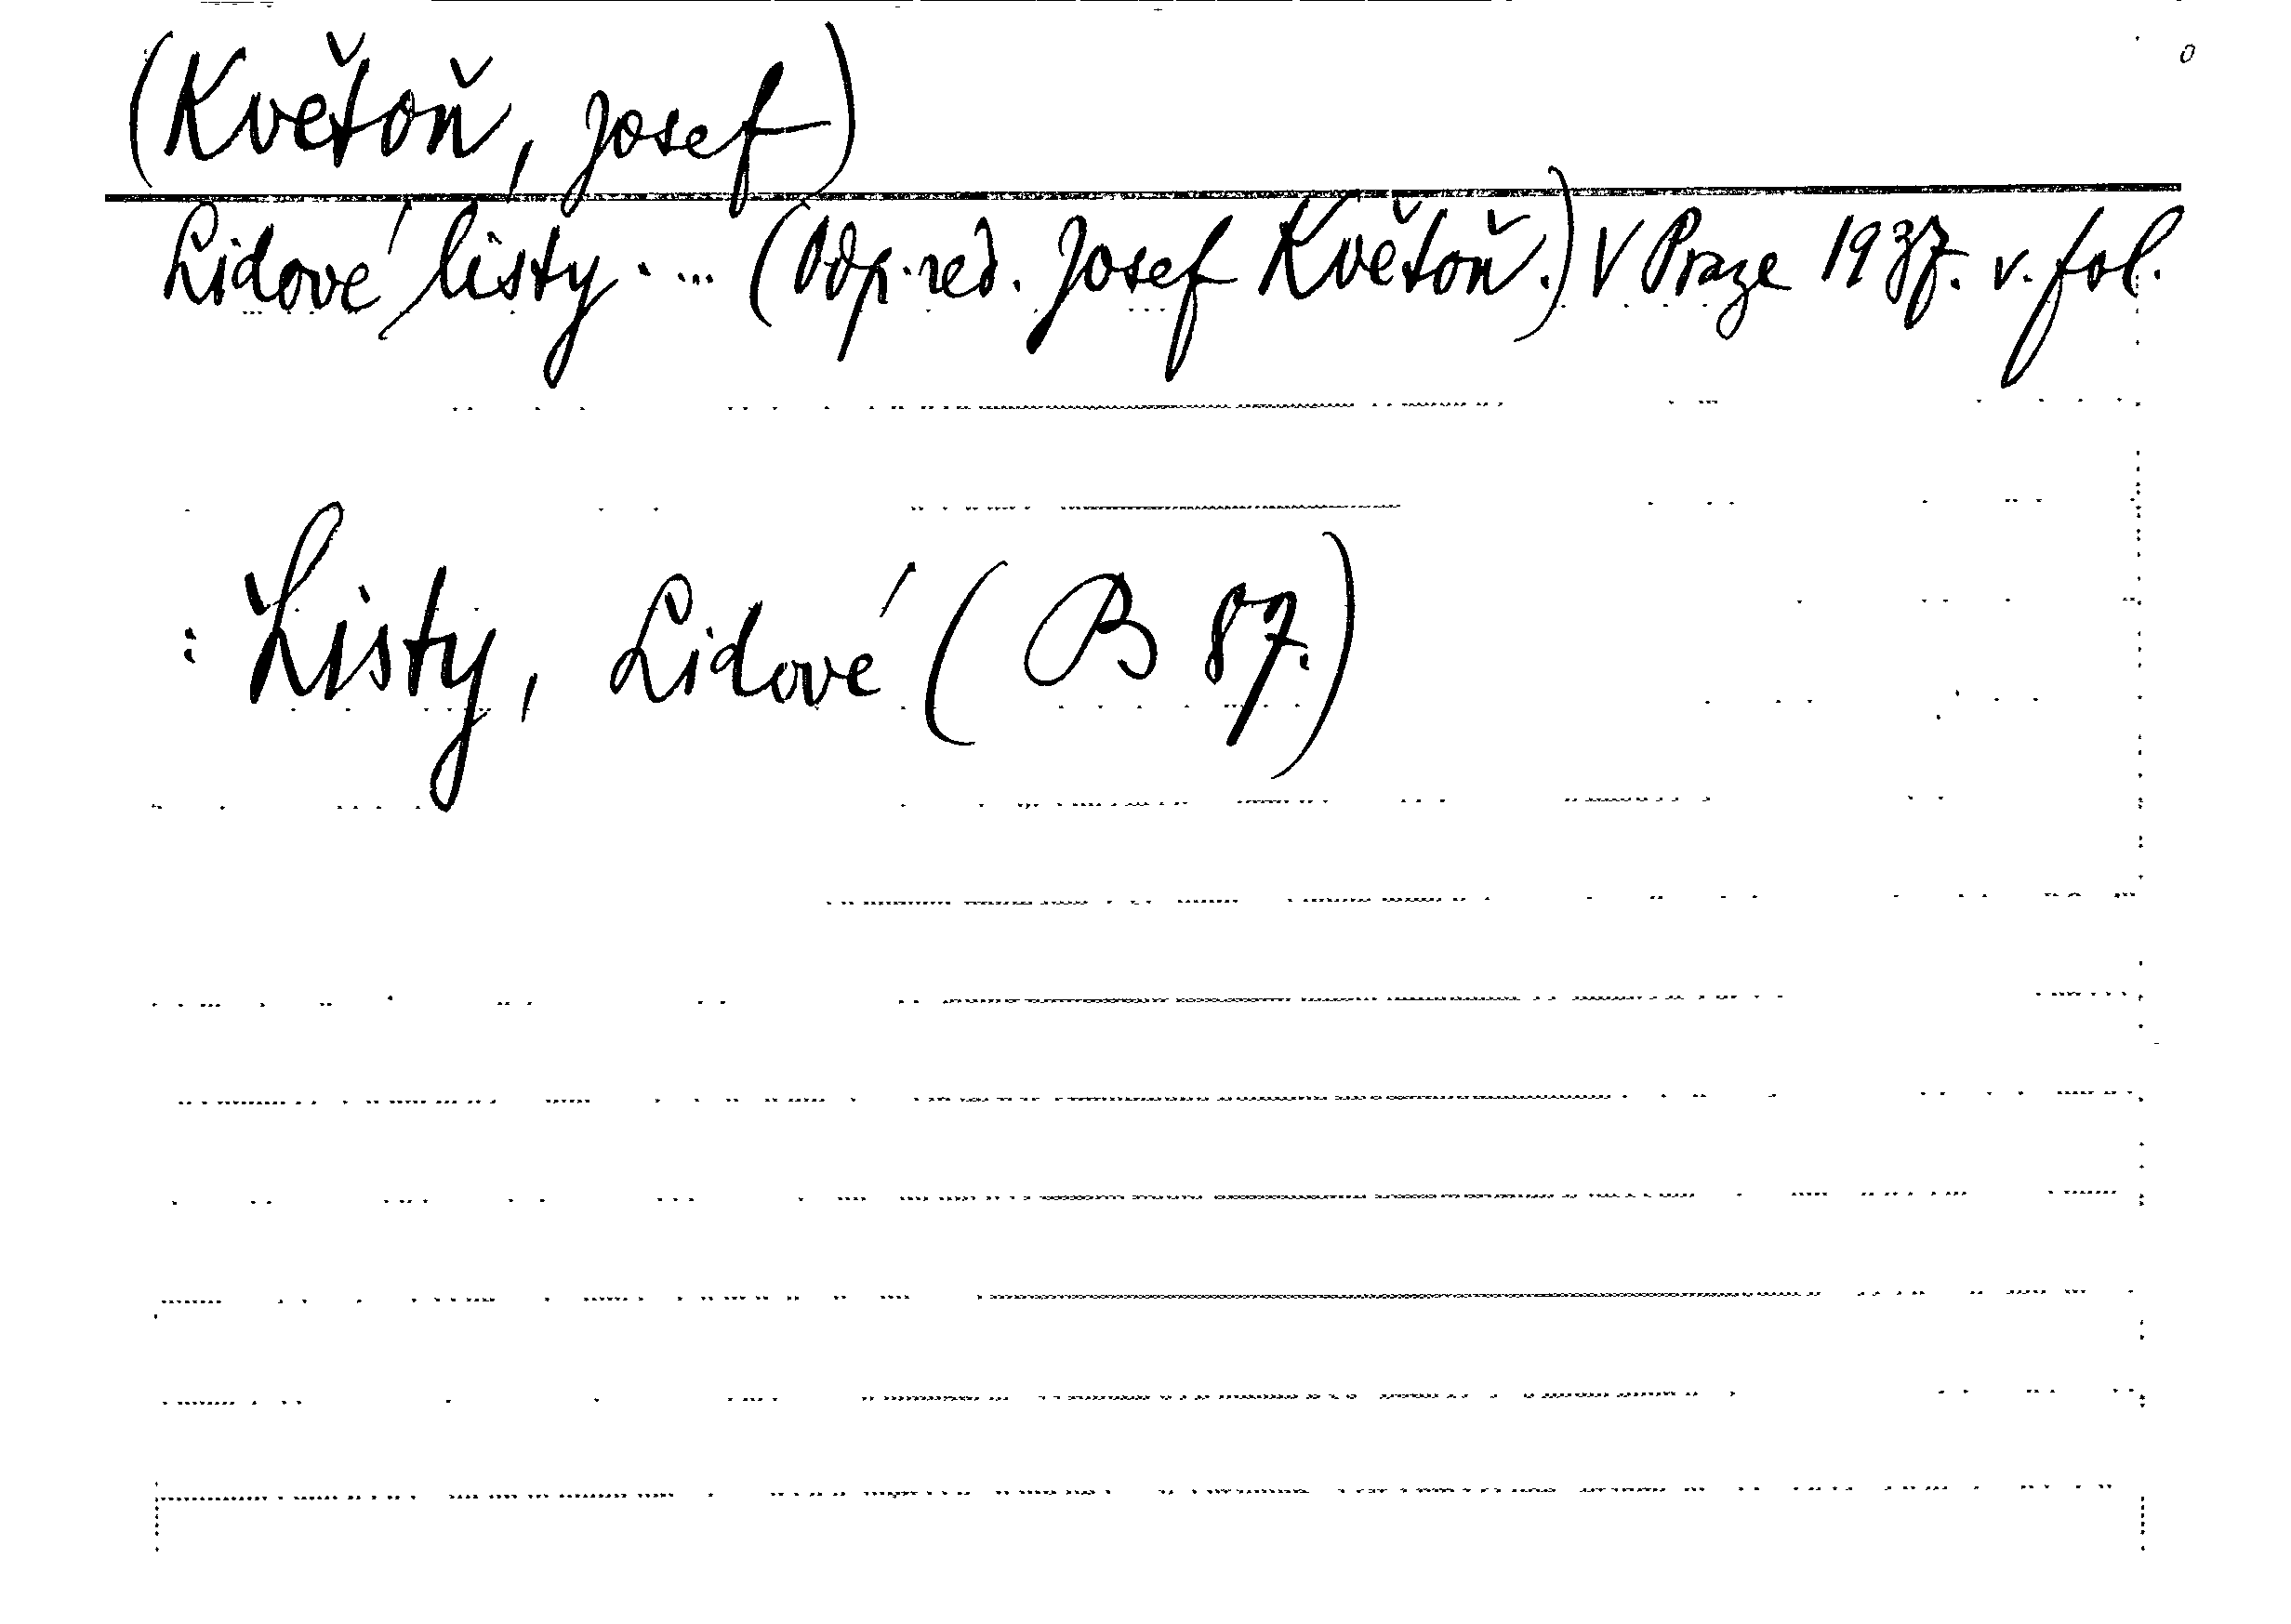 (Květoň, Josef)
Lidové listy .... (Odp. red. Josef Květoň.) V Praze 1937. v. fol.
: Listy, Lidové (B 87.)